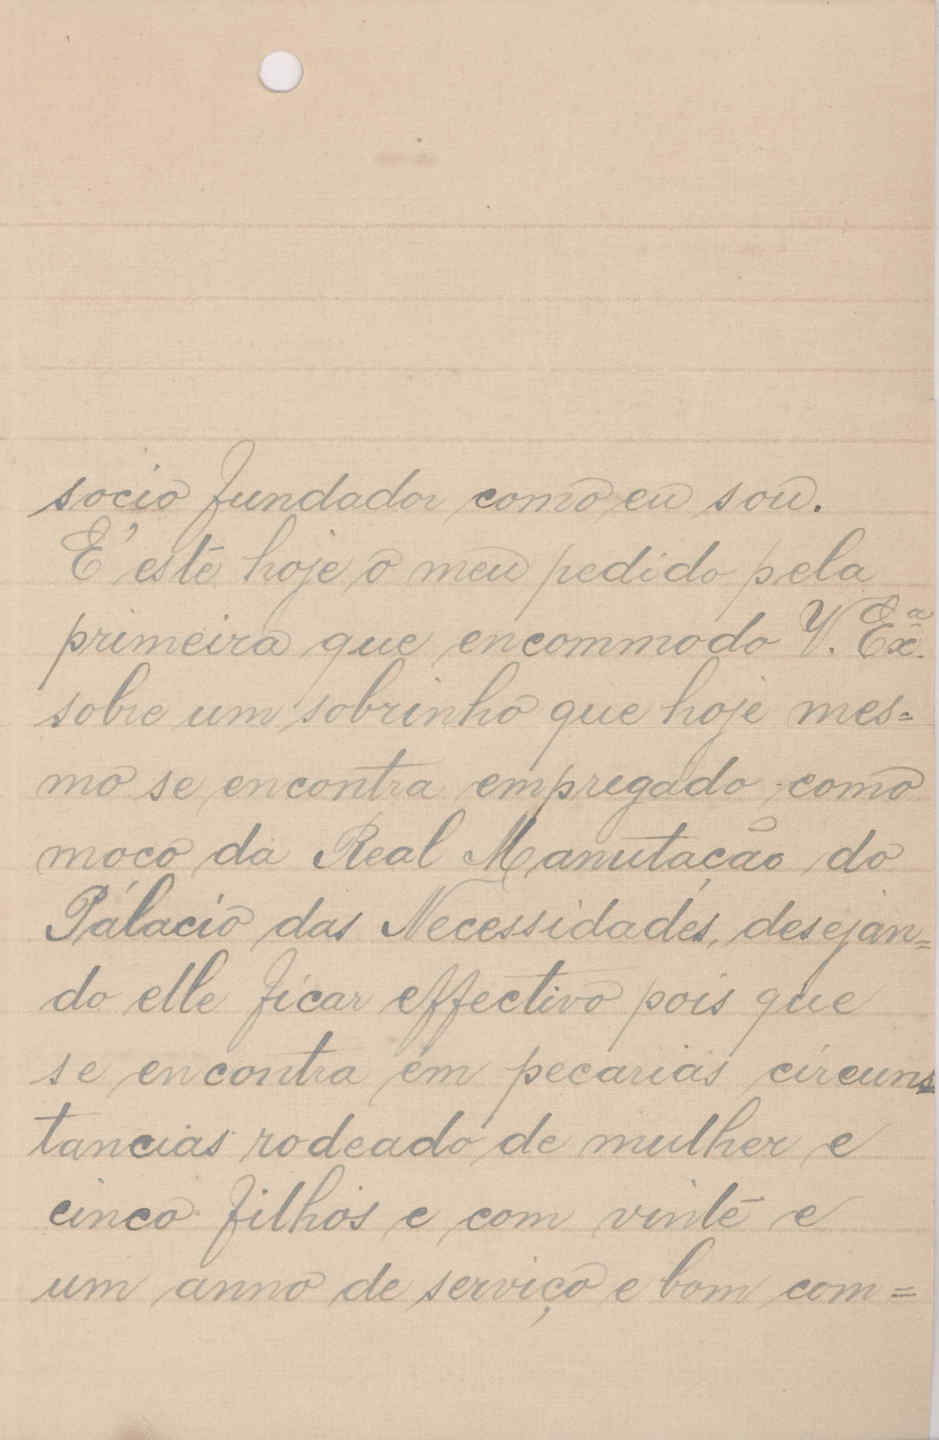 socio fundador como eu sou.
E' este hoje o meu pedido pela
primeira que encommodo V. Exª.
sobre um sobrinho que hoje mes=
mo se encontra empregado como
moco da Real Manutacão do
Pálacio das Necessidades, desejan=
do elle ficar effectivo pois que
se encontra em pecarias circuns
tancias rodeado de mulher e
cinco filhos e com vinte e
um anno de serviço e bom com=